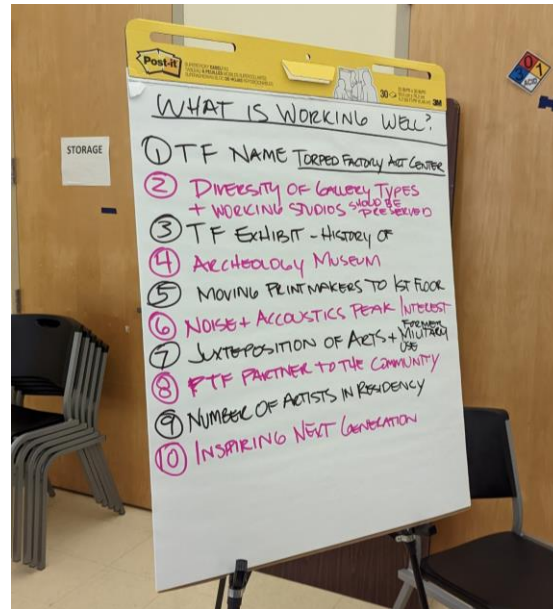 Post-it
30
3M
WHAT IS WORKING WELL?
① TF NAME TORPED FACTORY ART CENTER
② DIVERSITY OF GALLERY TYPES
+ WORKING STUDIOS SHOULD BE
PRESERVED
③ TF EXHIBIT - HISTORY OF
④ ARCHEOLOGY MUSEUM
⑤ MOVING PRINTMAKERS TO 1ST FLOOR
⑥ NOISE + ACCOUSTICS PEAK INTEREST
⑦ JUXTEPOSITION OF ARTS + FORMER
MILITARY
USE
⑧ PTF PARTNER TO THE COMMUNITY
⑨ NUMBER OF ARTISTS IN RESIDENCY
⑩ INSPIRING NEXT GENERATION
STORAGE
0
1
ACID